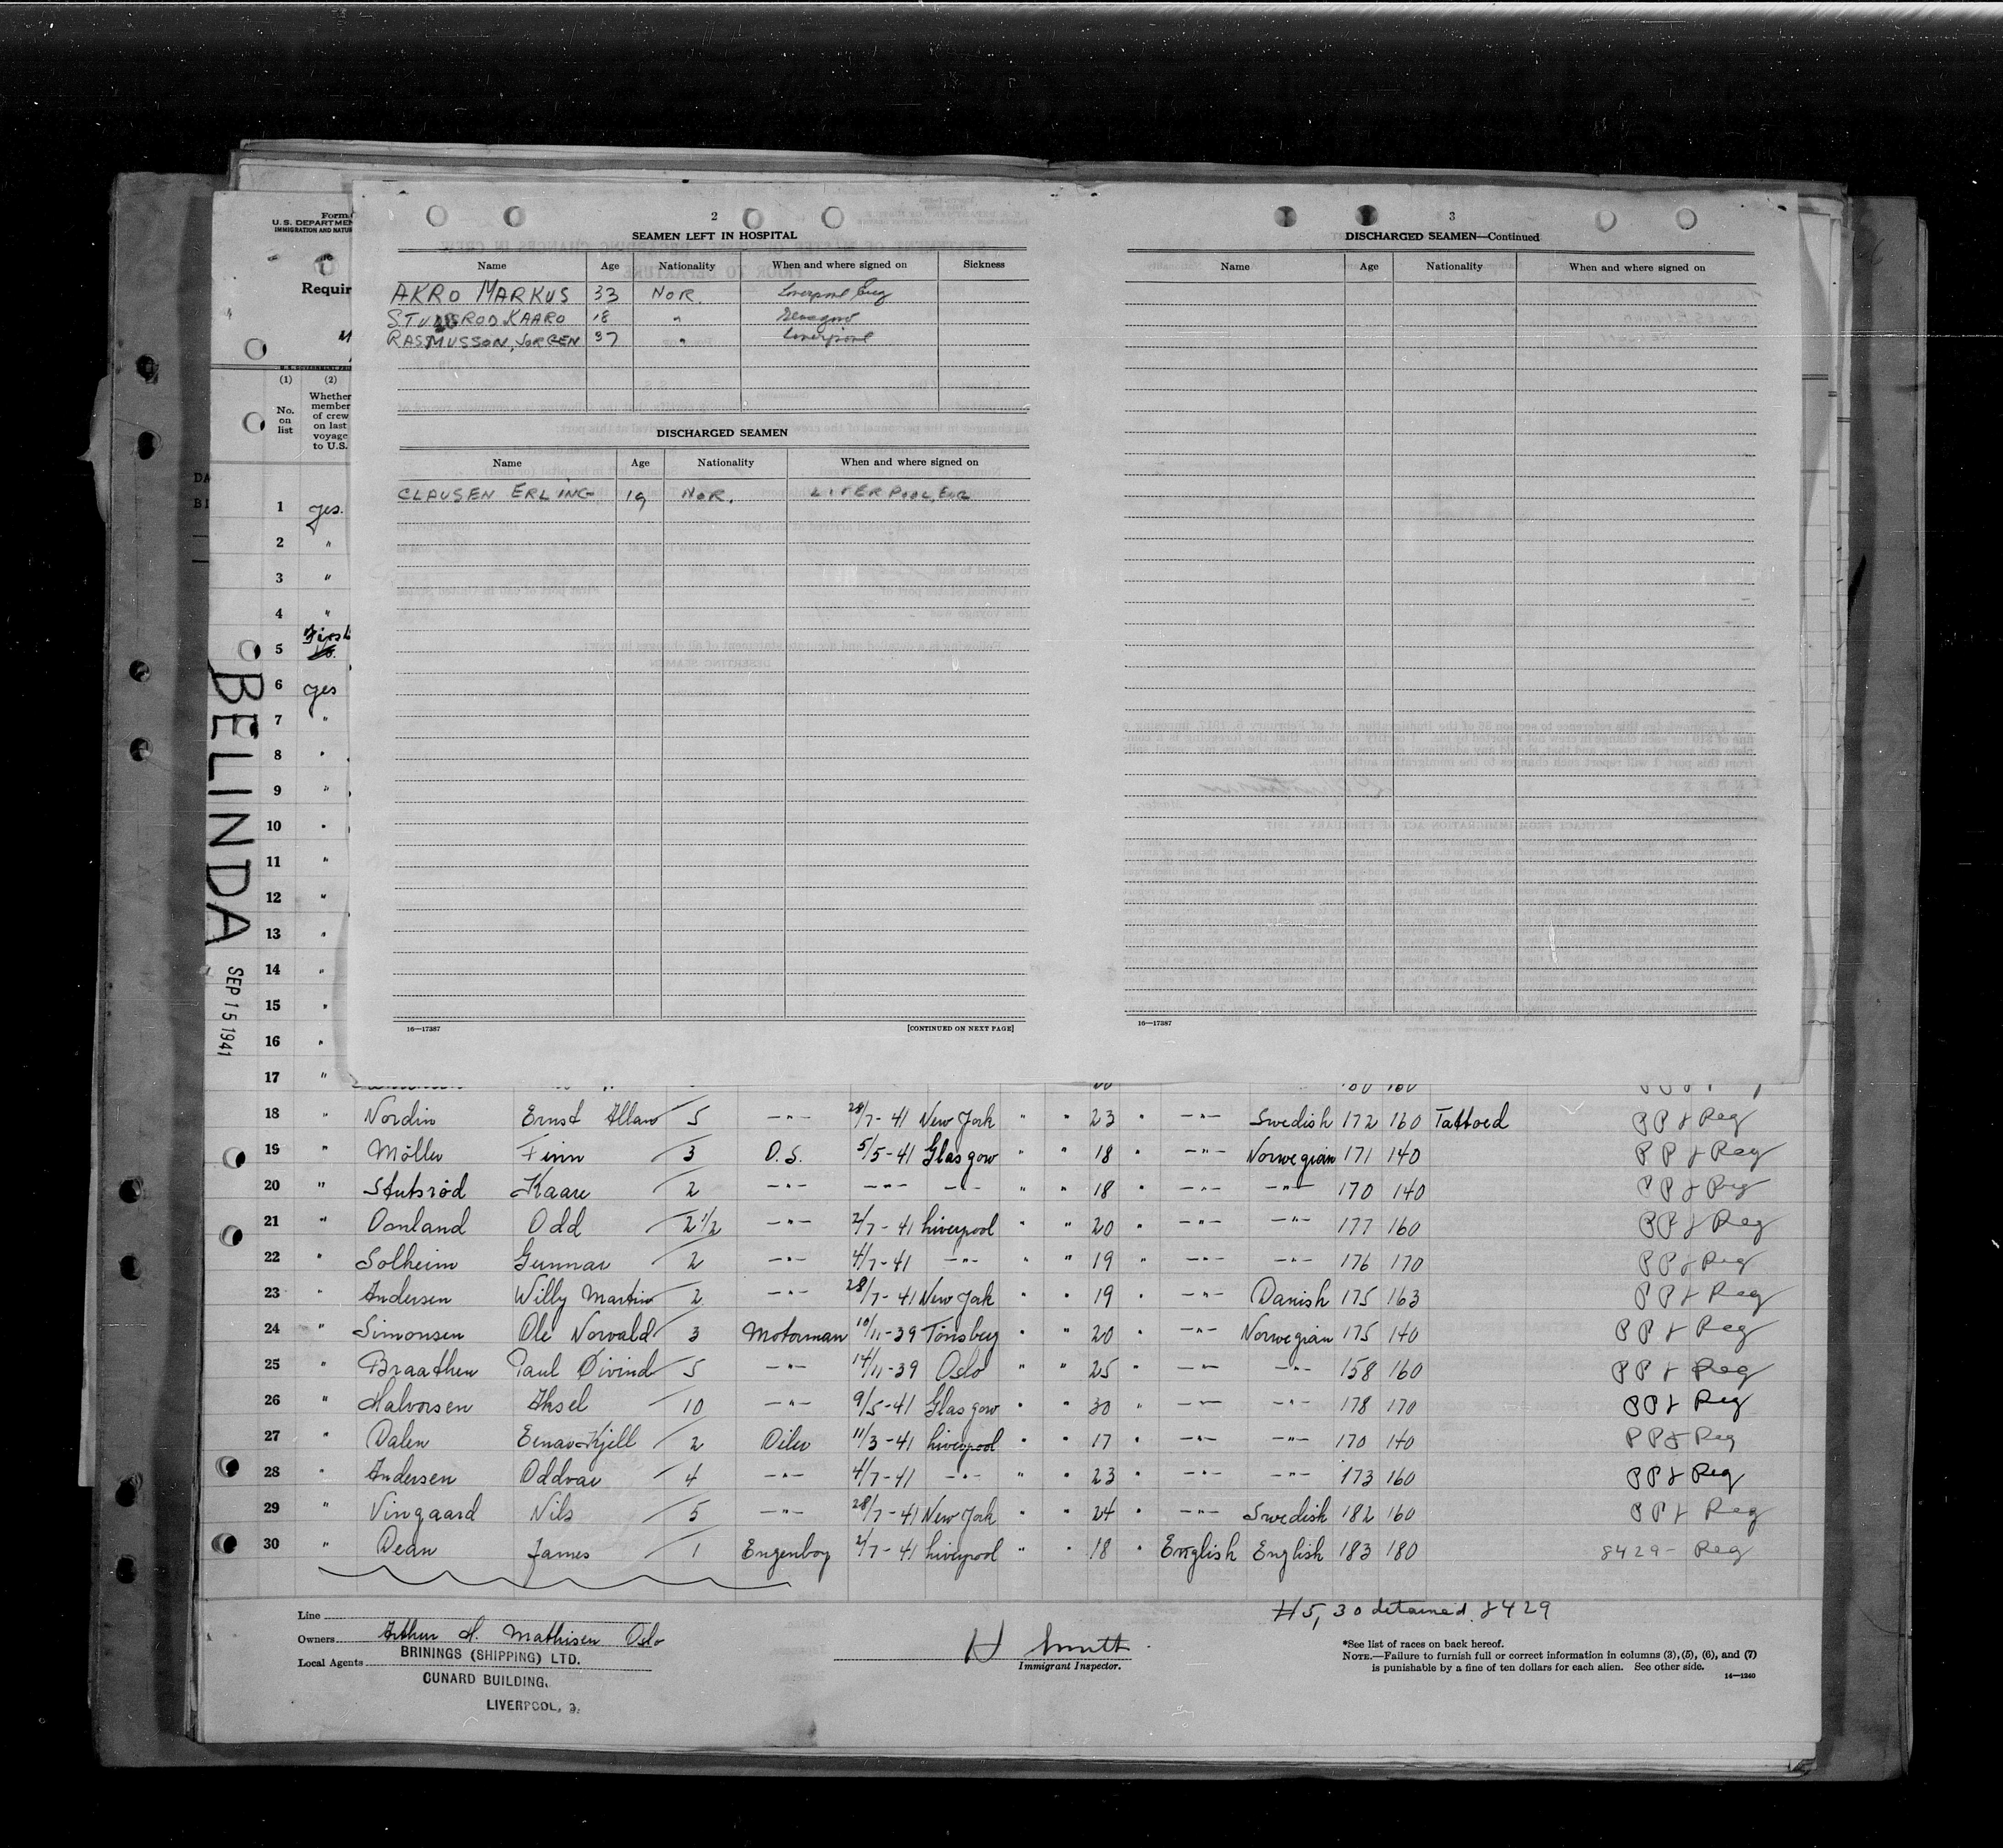 Form
U.S. DEPARTMEN
IMMIGRATION AND NATUR
Requir
(1) (2)
No. on list
Whether member of crew on last voyage to U.S.
2
SEAMEN LEFT IN HOSPITAL
Name Age Nationality When and where signed on Sickness
AKRO MARKUS 33 NOR. Liverpool Eng
KAARO 18 " Glasgow
RASMUSSON, JORGEN 37 " Liverpool
DISCHARGED SEAMEN
Name Age Nationality When and where signed on
CLAUSEN ERLING 19 NOR. LIVERPOOL, ENG
16—17387 [CONTINUED ON NEXT PAGE]
3
DISCHARGED SEAMEN—Continued
Name Age Nationality When and where signed on
16—17387
BELINDA
SEP 15 1941
1 yes.
2 "
3 "
4 "
5 First
6 yes
7 "
8 "
9 "
10 "
11 "
12 "
13 "
14 "
15 "
16 "
17 "
18 " Nordin Ernst Allan 5 —"— 28/7-41 New York " " 23 " —"— Swedish 172 160 Tattoed PP & Reg
19 " Möller Finn 3 O.S. 5/5-41 Glasgow " " 18 " —"— Norwegian 171 140 PP & Reg
20 " Stutsrød Kaare 2 —"— —"— —"— " " 18 " —"— —"— 170 140 PP & Reg
21 " Odd 2 1/2 —"— 2/7-41 Liverpool " " 20 " —"— —"— 177 160 PP & Reg
22 " Solheim Gunnar 2 —"— 4/7-41 —"— " " 19 " —"— —"— 176 170 PP & Reg
23 " Andersen Willy Martin 2 —"— 28/7-41 New York " " 19 " —"— Danish 175 163 PP & Reg
24 " Simonsen Ole Norvald 3 Motorman 10/11-39 Tönsberg " " 20 " —"— Norwegian 175 140 PP & Reg
25 " Braathen Paul Øivind 5 —"— 14/11-39 Oslo " " 25 " —"— —"— 158 160 PP & Reg
26 " Halvorsen Aksel 10 —"— 9/5-41 Glasgow " " 30 " —"— —"— 178 170 PP & Reg
27 " Dalen Einar Kjell 2 Oiler 11/3-41 Liverpool " " 17 " —"— —"— 170 140 PP & Reg
28 " Andersen Oddvar 4 —"— 4/7-41 —"— " " 23 " —"— —"— 173 160 PP & Reg
29 " Vingaard Nils 5 —"— 28/7-41 New York " " 24 " —"— Swedish 182 160 PP & Reg
30 " Dean James 1 Engenboy 2/7-41 Liverpool " " 18 " English English 183 180 8429- Reg
#5, 30 detained 8429
Line
Owners Arthur H. Mathisen Oslo
Local Agents BRININGS (SHIPPING) LTD.
CUNARD BUILDING,
LIVERPOOL, 3.
H Smith
Immigrant Inspector.
*See list of races on back hereof.
NOTE.—Failure to furnish full or correct information in columns (3), (5), (6), and (7)
is punishable by a fine of ten dollars for each alien. See other side.
14—1240